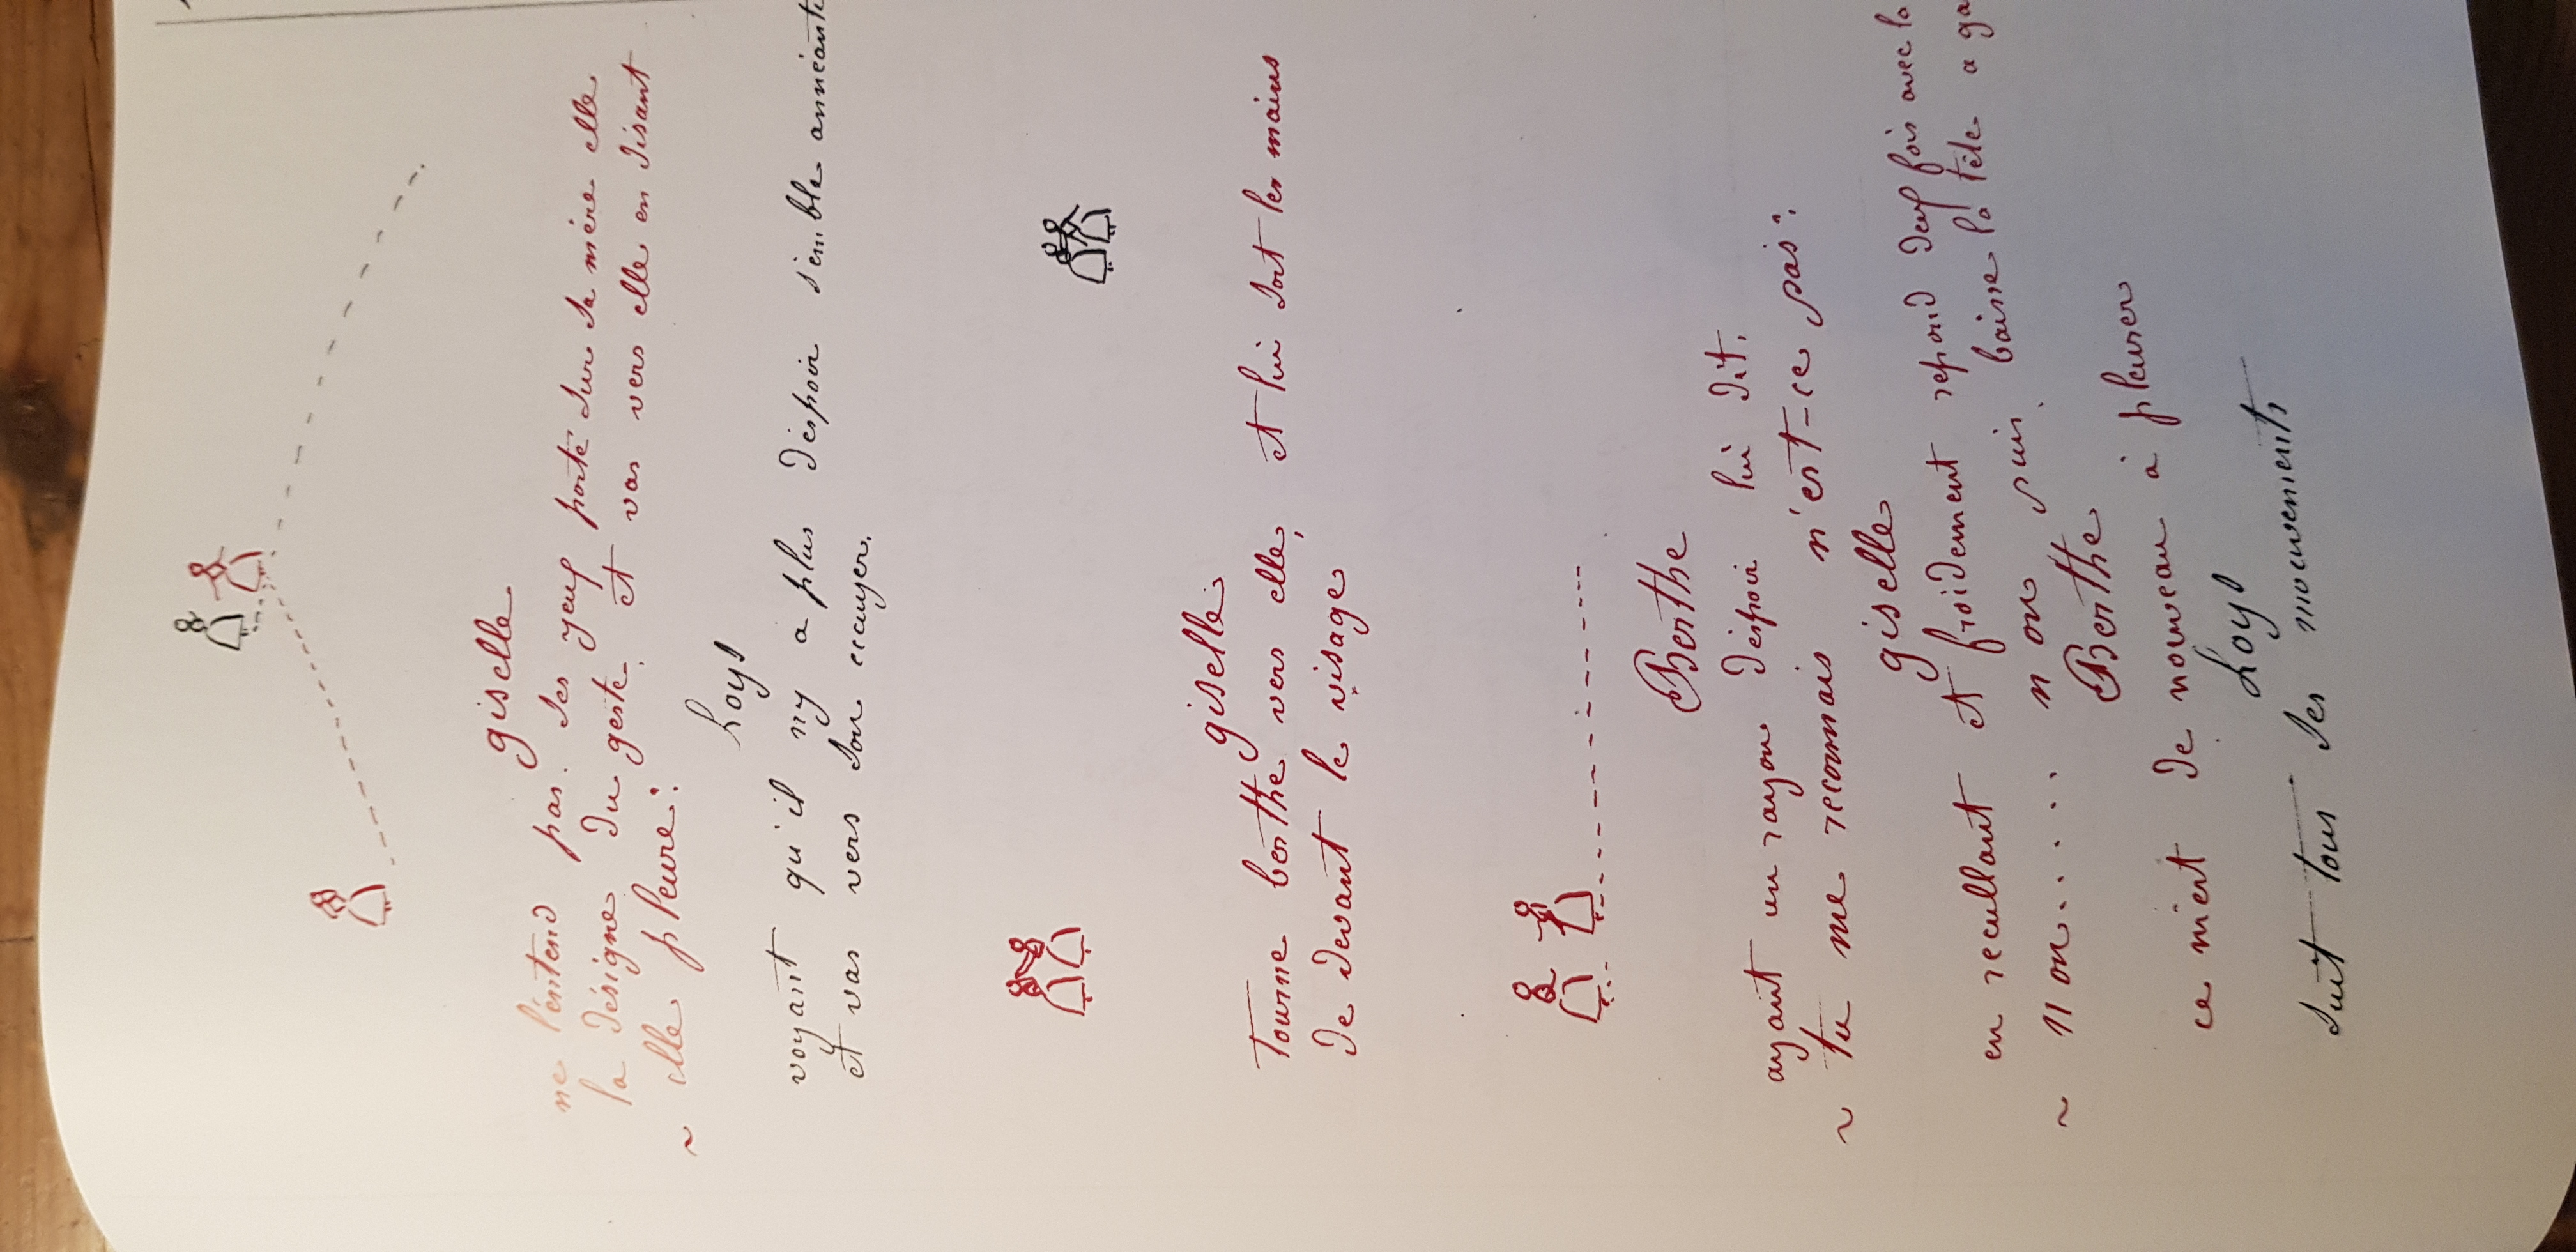 giselle
ne l'entend pas. ses yeux porté sur sa mère elle
la désigne du geste. et vas vers elle en disant
~ elle pleure!
Loys
voyant qu'il ny a plus d'espoir s'emble anéanti
et vas vers son ecuyer.
giselle
tourne berthe vers elle, et lui sort les mains
de devant le visage
Berthe
ayant un rayon d'espoir lui dit.
~ tu me reconnais n'est-ce pas?
giselle
en recullant et froidement repond deux fois avec la
baisse la tête a ga
~ non...... non puis.
Berthe
ce mient de nouveau à pleurer
Loys
suit tous ses mouvements